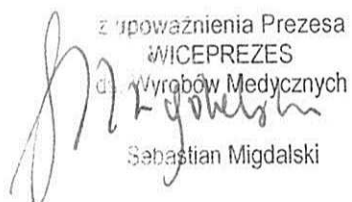 z upoważnienia Prezesa
WICEPREZES
ds. Wyrobów Medycznych
Sebastian Migdalski